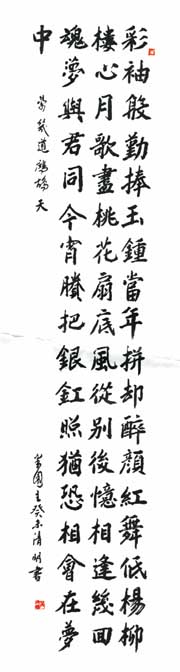 彩袖殷勤捧玉鍾當年拼却醉顏紅舞低楊柳
樓心月歌盡桃花扇底風從別後憶相逢幾回
魂夢與君同今宵賸把銀釭照猶恐相會在夢
中
晏幾道鷓鴣天
癸未清明書